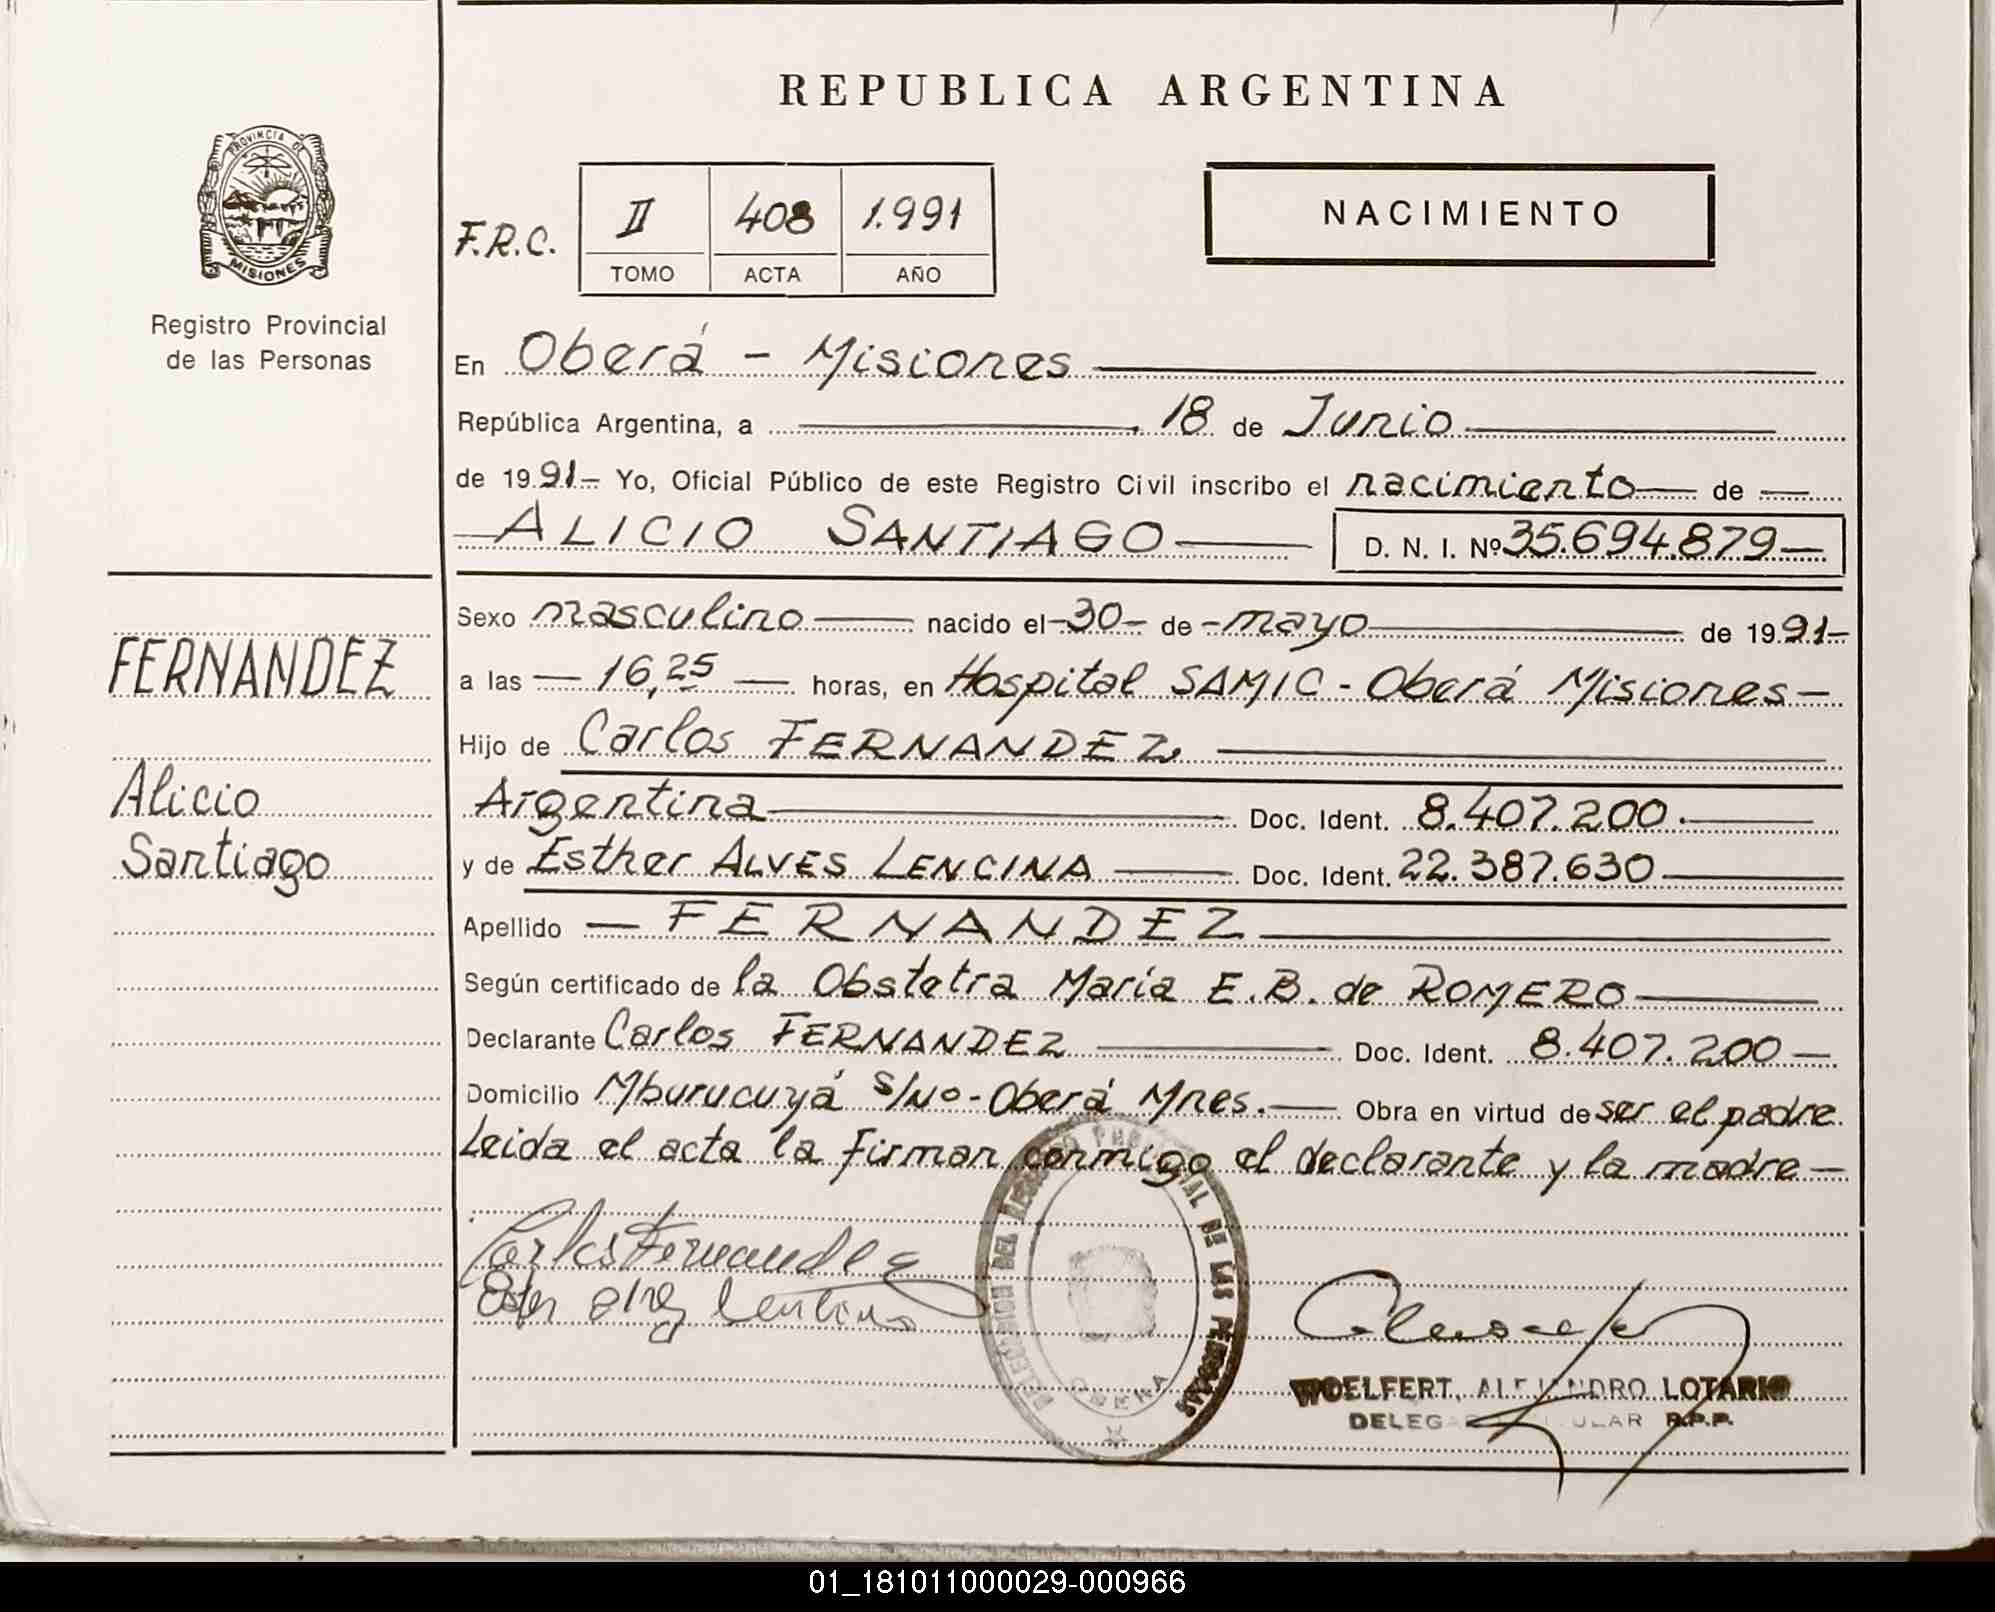 REPUBLICA ARGENTINA
PROVINCIA DE
MISIONES
Registro Provincial
de las Personas
F.R.C.
II 408 1.991
TOMO ACTA AÑO
NACIMIENTO
En Oberá - Misiones
República Argentina, a 18 de Junio
de 1991- Yo, Oficial Público de este Registro Civil inscribo el nacimiento de
ALICIO SANTIAGO D. N. I. Nº 35.694.879
Sexo masculino nacido el 30 de mayo de 1991-
FERNANDEZ
a las 16,25 horas, en Hospital SAMIC - Oberá Misiones
Hijo de Carlos FERNANDEZ
Alicio
Santiago
Argentina Doc. Ident. 8.407.200.
y de Esther ALVES LENCINA Doc. Ident. 22.387.630
Apellido FERNANDEZ
Según certificado de la Obstetra María E.B. de ROMERO
Declarante Carlos FERNANDEZ Doc. Ident. 8.407.200
Domicilio Mburucuyá S/Nº - Oberá Mnes. Obra en virtud de ser el padre.
Leida el acta la firman conmigo el declarante y la madre
Carlos Fernandez
DELEGACION DEL REGISTRO PROVINCIAL DE LAS PERSONAS
OBERA
WOELFERT, ALEJANDRO LOTARIO
R.P.P.
01_181011000029-000966